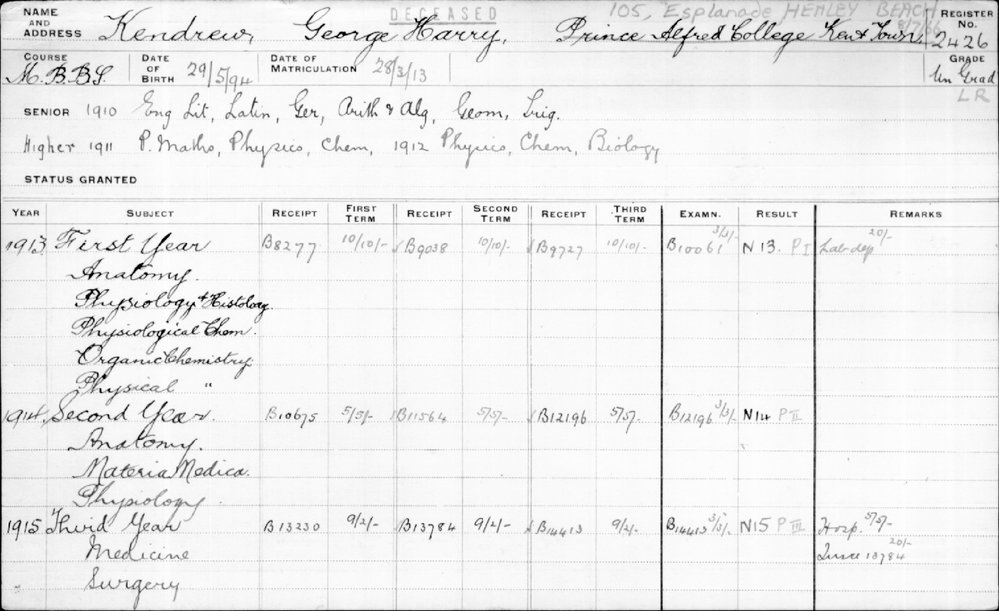 NAME AND ADDRESS Kendrew, George Harry, Prince Alfred College Kent Town.
DECEASED
105, Esplanade HENLEY BEACH
REGISTER No. 2426
COURSE M.B.B.S. DATE OF BIRTH 29/5/94 DATE OF MATRICULATION 28/3/13 GRADE Un Grad
LR
SENIOR 1910 Eng Lit, Latin, Ger, Arith & Alg, Geom, Trig.
Higher 1911 P. Maths, Physics, Chem, 1912 Physics, Chem, Biology
STATUS GRANTED
YEAR SUBJECT RECEIPT FIRST TERM RECEIPT SECOND TERM RECEIPT THIRD TERM EXAMN. RESULT REMARKS
1913 First Year B8277 10/10/- B9038 10/10/- B9727 10/10/- B10061 3/3/- N13. PI Lab dep 20/-
Anatomy.
Physiology & Histology.
Physiological Chem.
Organic Chemistry.
Physical "
1914 Second Year. B10675 5/5/- B11564 5/5/- B12196 5/5/- B12196 3/3/- N14 PII
Anatomy.
Materia Medica.
Physiology.
1915 Third Year B13230 9/2/- B13784 9/2/- B14413 9/2/- B14413 3/3/- N15 PIII Hosp. 5/5/-
Medicine 13784 20/-
Surgery